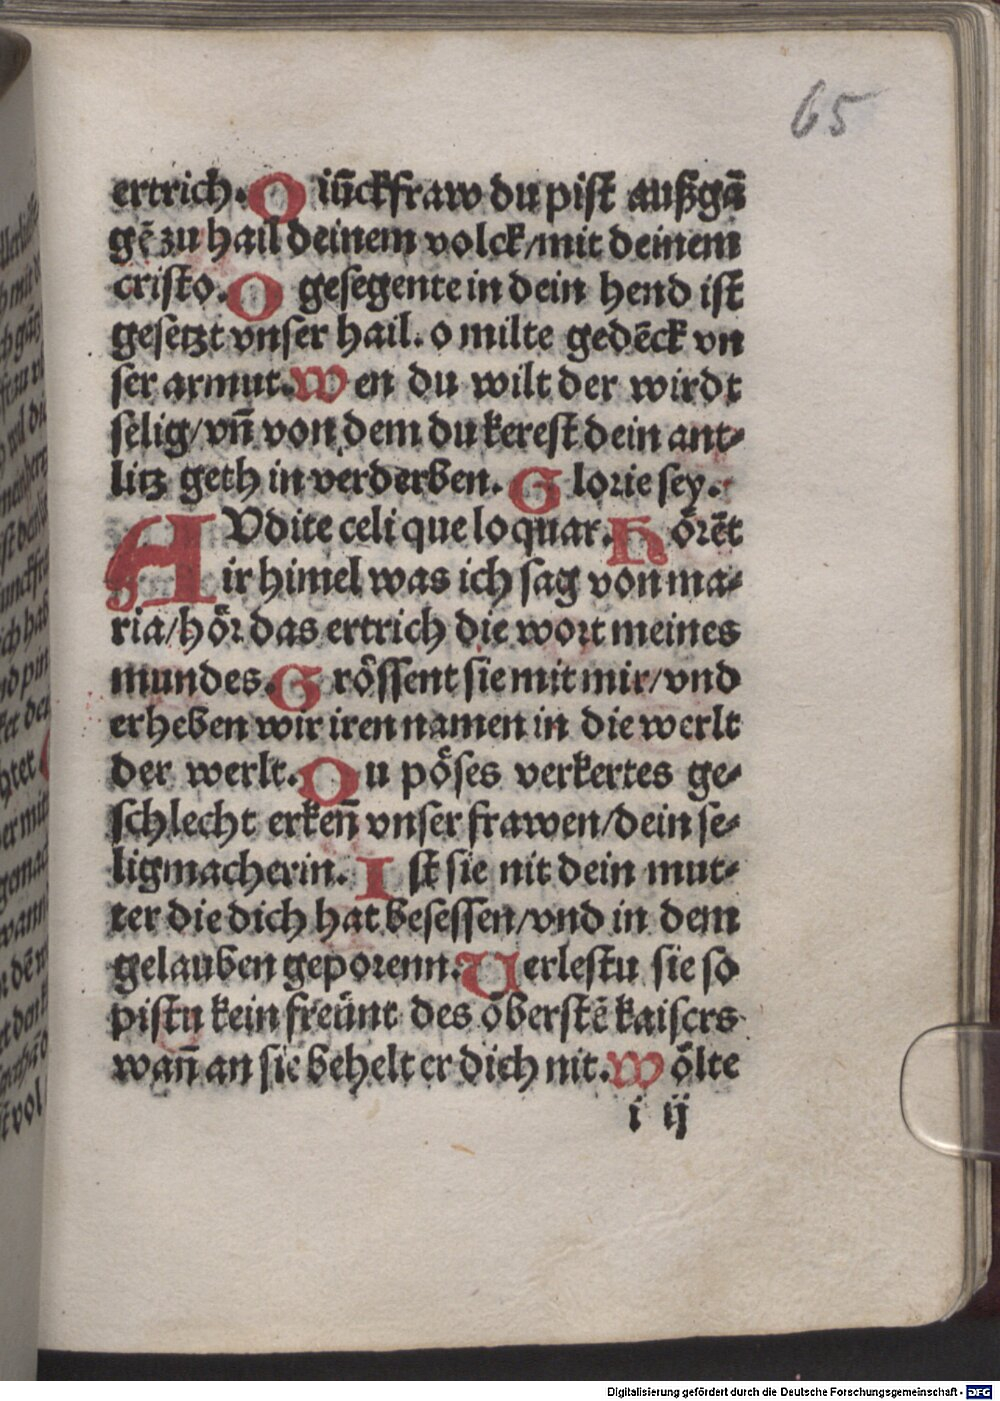 65
ertrich. O iūckfraw du pist außgā
gē zu hail deinem volck/mit deinem
cristo. O gesegente in dein hend ist
gesetzt vnser hail. o milte gedēck vn
ser armut. Wen du wilt der wirdt
selig/vn̄ von dem du kerest dein ant⸗
litz geth in verderben. Glorie sey.
AVdite celi que loquar. Hörēt
ir himel was ich sag von ma⸗
ria/hör das ertrich die wort meines
mundes. Grössent sie mit mir/vnd
erheben wir iren namen in die werlt
der werlt. Ou pöses verkertes ge⸗
schlecht erken̄ vnser frawen/dein se⸗
ligmacherin. Ist sie nit dein mut⸗
ter die dich hat besessen/vnd in dem
gelauben geporenn. Verlestu sie so
pistu kein freünt des öberstē kaisers
wan̄ an sie behelt er dich nit. Wölte
i ij
Digitalisierung gefördert durch die Deutsche Forschungsgemeinschaft - DFG